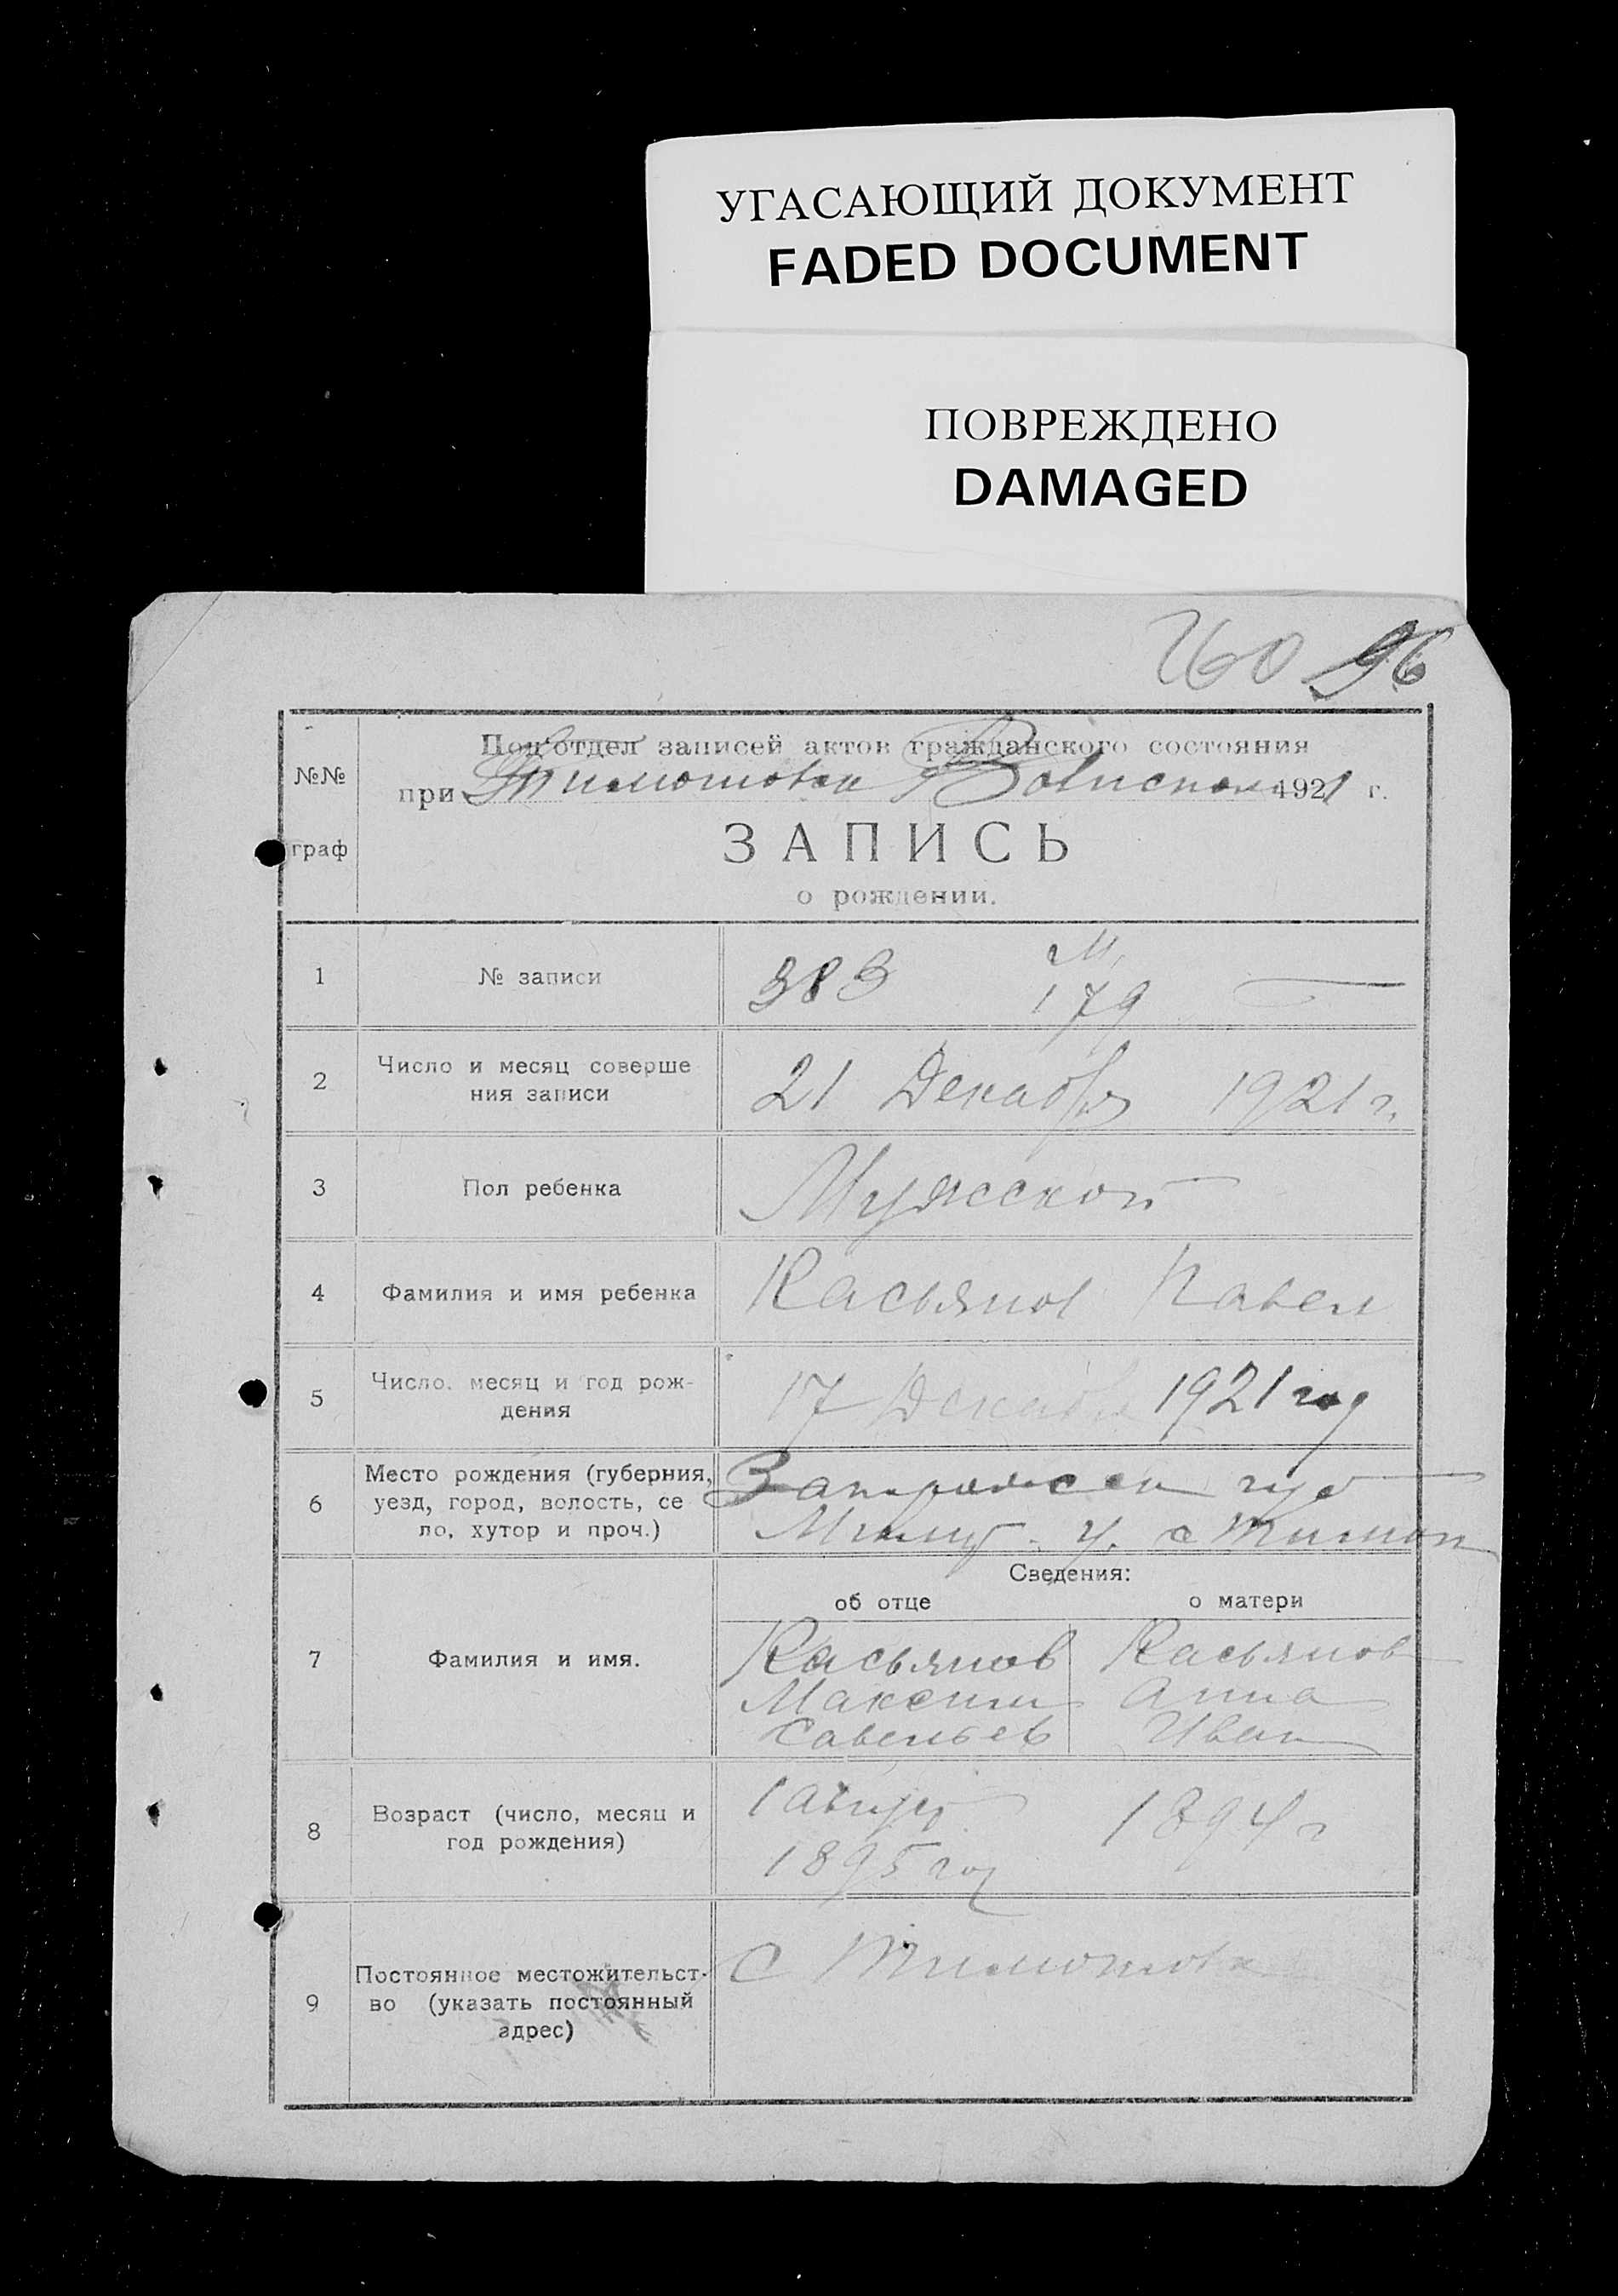 УГАСАЮЩИЙ ДОКУМЕНТ
FADED DOCUMENT
ПОВРЕЖДЕНО
DAMAGED
260 96
№№
граф
Под'отдел записей актов гражданского состояния
при Тимошовск Волисполк 1921 г.
ЗАПИСЬ
о рождении.
1
№ записи
383
М,
179
2
Число и месяц соверше
ния записи
21 Декабря 1921 г.
3
Пол ребенка
Мужской
4
Фамилия и имя ребенка
Касьянов Павел
5
Число, месяц и год рож-
дения
17 Декабря 1921 год
6
Место рождения (губерния,
уезд, город, волость, се
ло, хутор и проч.)
Запорожск губ
Мелит. у. с Тимош
Сведения:
об отце
о матери
7
Фамилия и имя.
Касьянов
Максим
Савельев
Касьянов
Анна
Иван
8
Возраст (число, месяц и
год рождения)
1 Август
1895 год
1894 г
9
Постоянное местожительст-
во (указать постоянный
адрес)
С Тимошовка